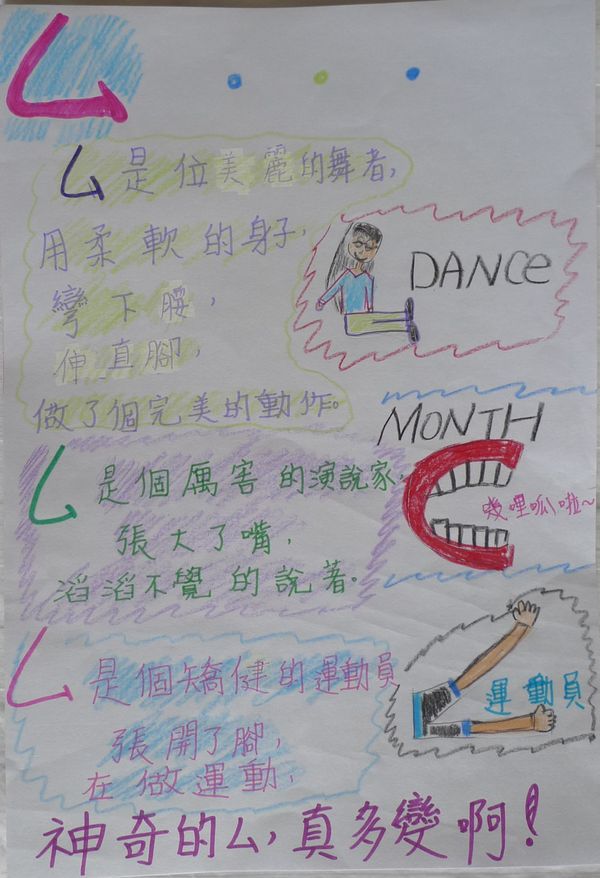 ㄥ
ㄥ是位美麗的舞者,
用柔軟的身子,
彎下腰,
伸直腳,
做了個完美的動作。
DANCe
ㄥ是個厲害的演說家,
張大了嘴,
滔滔不覺的說著。
MONTH
嘰哩呱啦~
ㄥ是個矯健的運動員
張開了腳,
在做運動,
運動員
神奇的ㄥ,真多變啊!